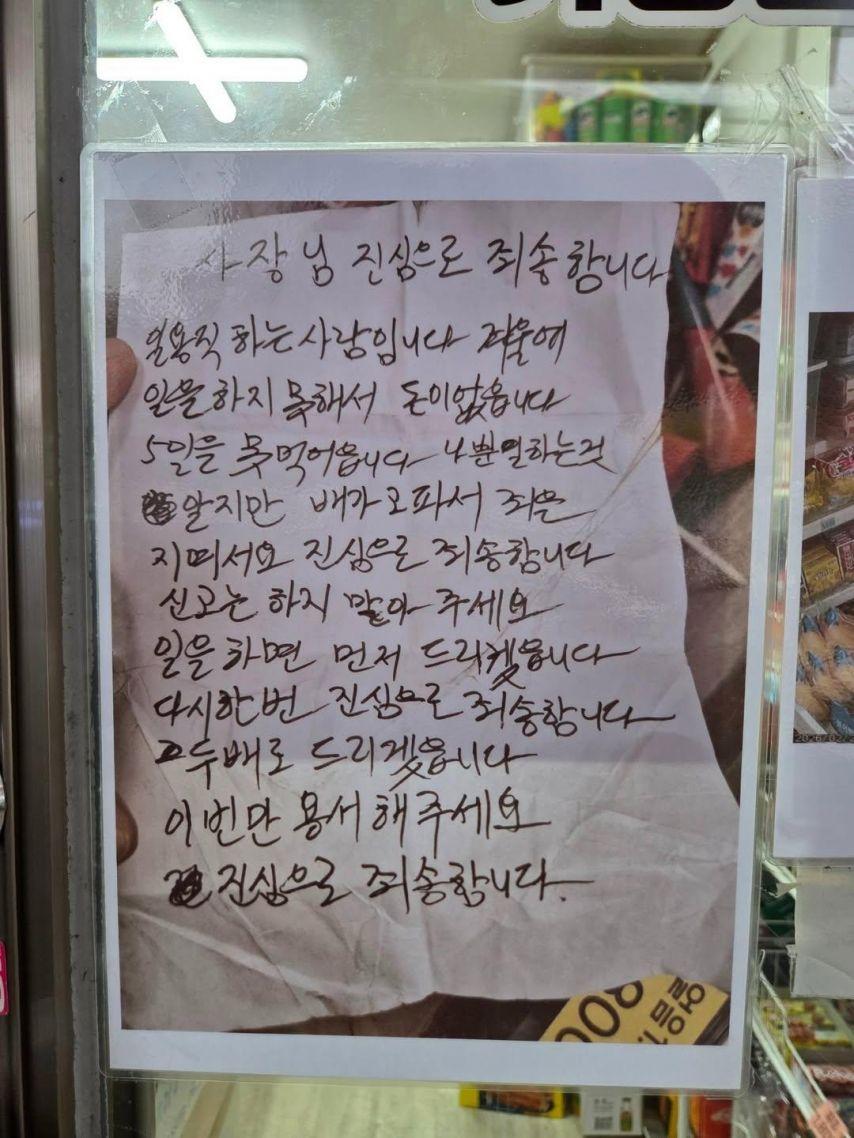 사장님 진심으로 죄송합니다
일용직 하는 사람입니다 겨울에
일을 하지 못해서 돈이 없습니다
5일을 못 먹어습니다 나쁜일 하는것
알지만 배가 고파서 죄은
지떠서요 진심으로 죄송합니다
신고는 하지 말아 주세요
일을 하면 먼저 드리겠읍니다
다시한번 진심으로 죄송합니다
두배로 드리겠읍니다
이번만 용서 해주세요
진심으로 죄송합니다.
008